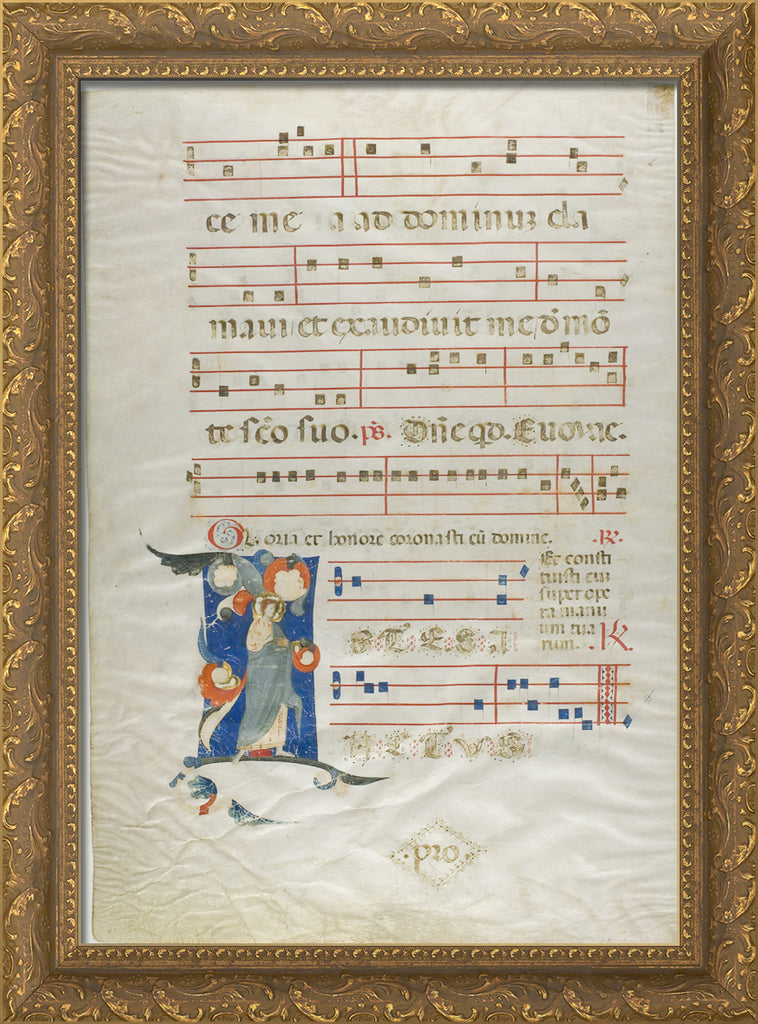 ce me a ad dominuz cla
maui et exaudiuit me, d̄ mō
te sc̄o suo. ps. Dn̄e qd. Euouae.
Gloria et honore coronasti eū domine. .R.
Et consti
tuisti eum
super ope
ra manu
um tua
rum. .R.
STESI
HLTVS
.pro.